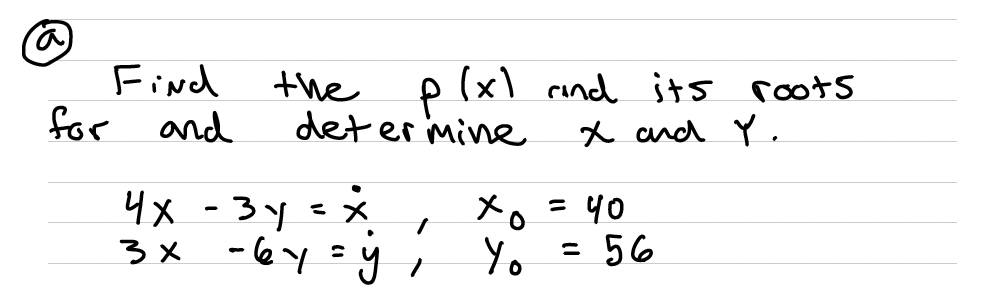 a
Find the p(x) and its roots
for and determine x and y.
4x - 3y = ẋ , x₀ = 40
3x - 6y = ẏ , y₀ = 56